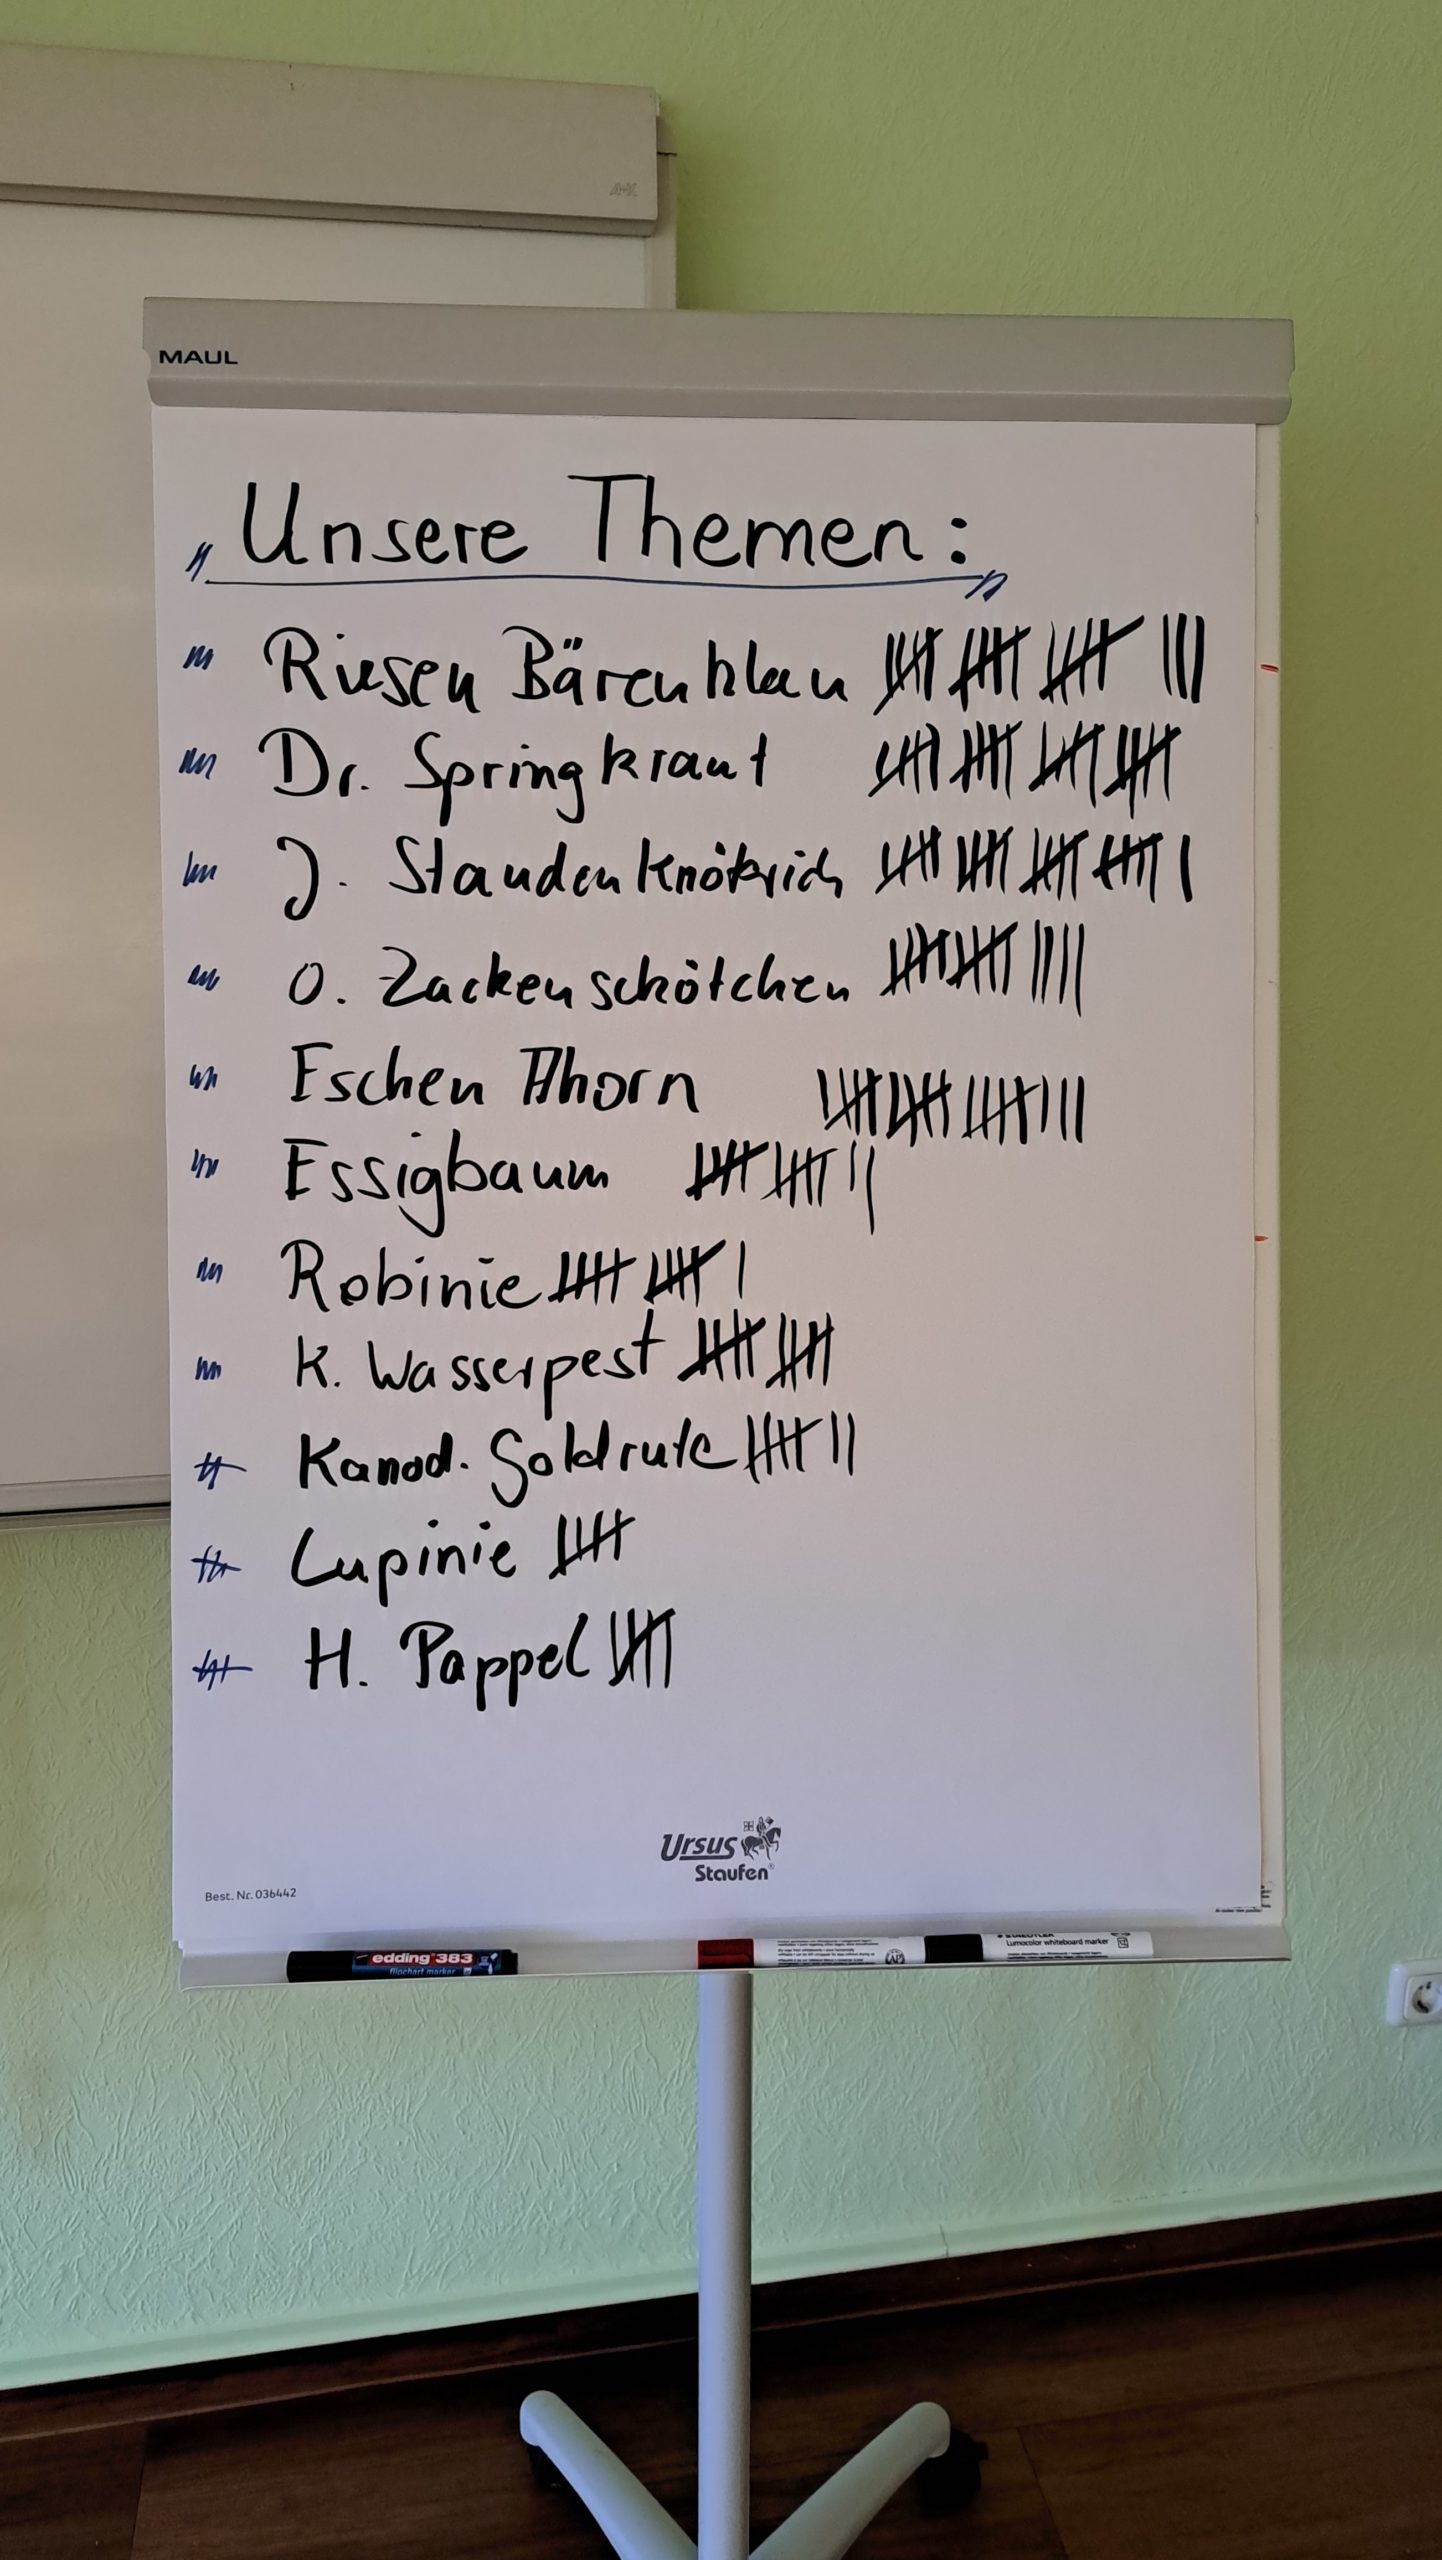 A+K
MAUL
„Unsere Themen:"
Riesen Bärenklau 卌 卌 卌 |||
Dr. Springkraut 卌 卌 卌 卌
J. Staudenknöterich 卌 卌 卌 卌 |
O. Zackenschötchen 卌 卌 ||||
Eschen Ahorn 卌 卌 卌 |||
Essigbaum 卌 卌 ||
Robinie 卌 卌 |
K. Wasserpest 卌 卌
Kanad. Goldrute 卌 ||
Lupinie 卌
H. Pappel 卌
Ursus
Staufen®
Best. Nr. 036442
edding 383
flipchart marker
STAEDTLER
Lumocolor whiteboard marker